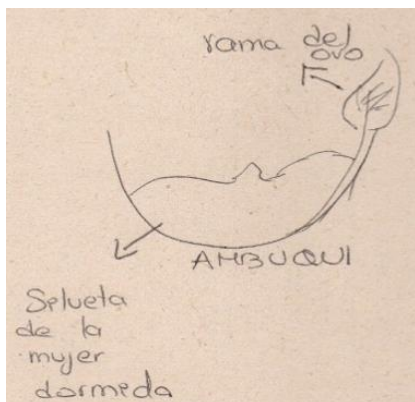 rama del
ovo
AMBUQUI
Selueta
de la
mujer
dormeda